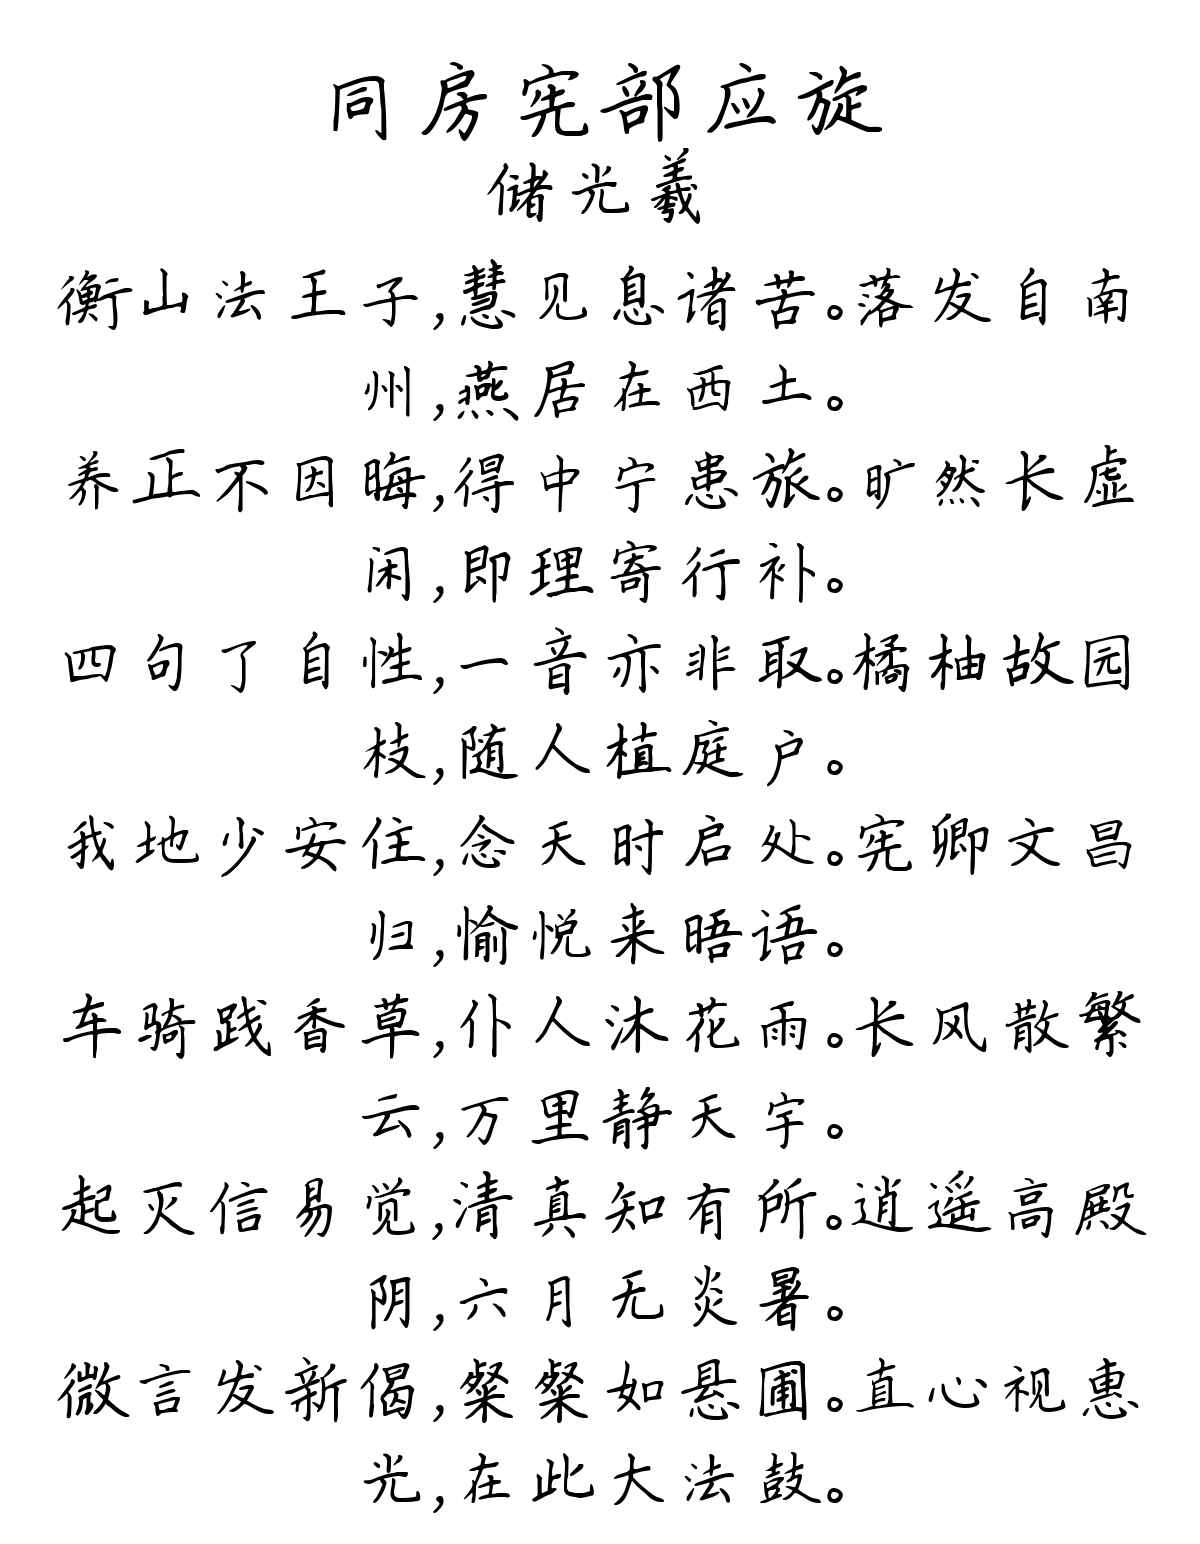 同房宪部应旋
储光羲
衡山法王子,慧见息诸苦。落发自南
州,燕居在西土。
养正不因晦,得中宁患旅。旷然长虚
闲,即理寄行补。
四句了自性,一音亦非取。橘柚故园
枝,随人植庭户。
我地少安住,念天时启处。宪卿文昌
归,愉悦来晤语。
车骑践香草,仆人沐花雨。长风散繁
云,万里静天宇。
起灭信易觉,清真知有所。逍遥高殿
阴,六月无炎暑。
微言发新偈,粲粲如悬圃。直心视惠
光,在此大法鼓。